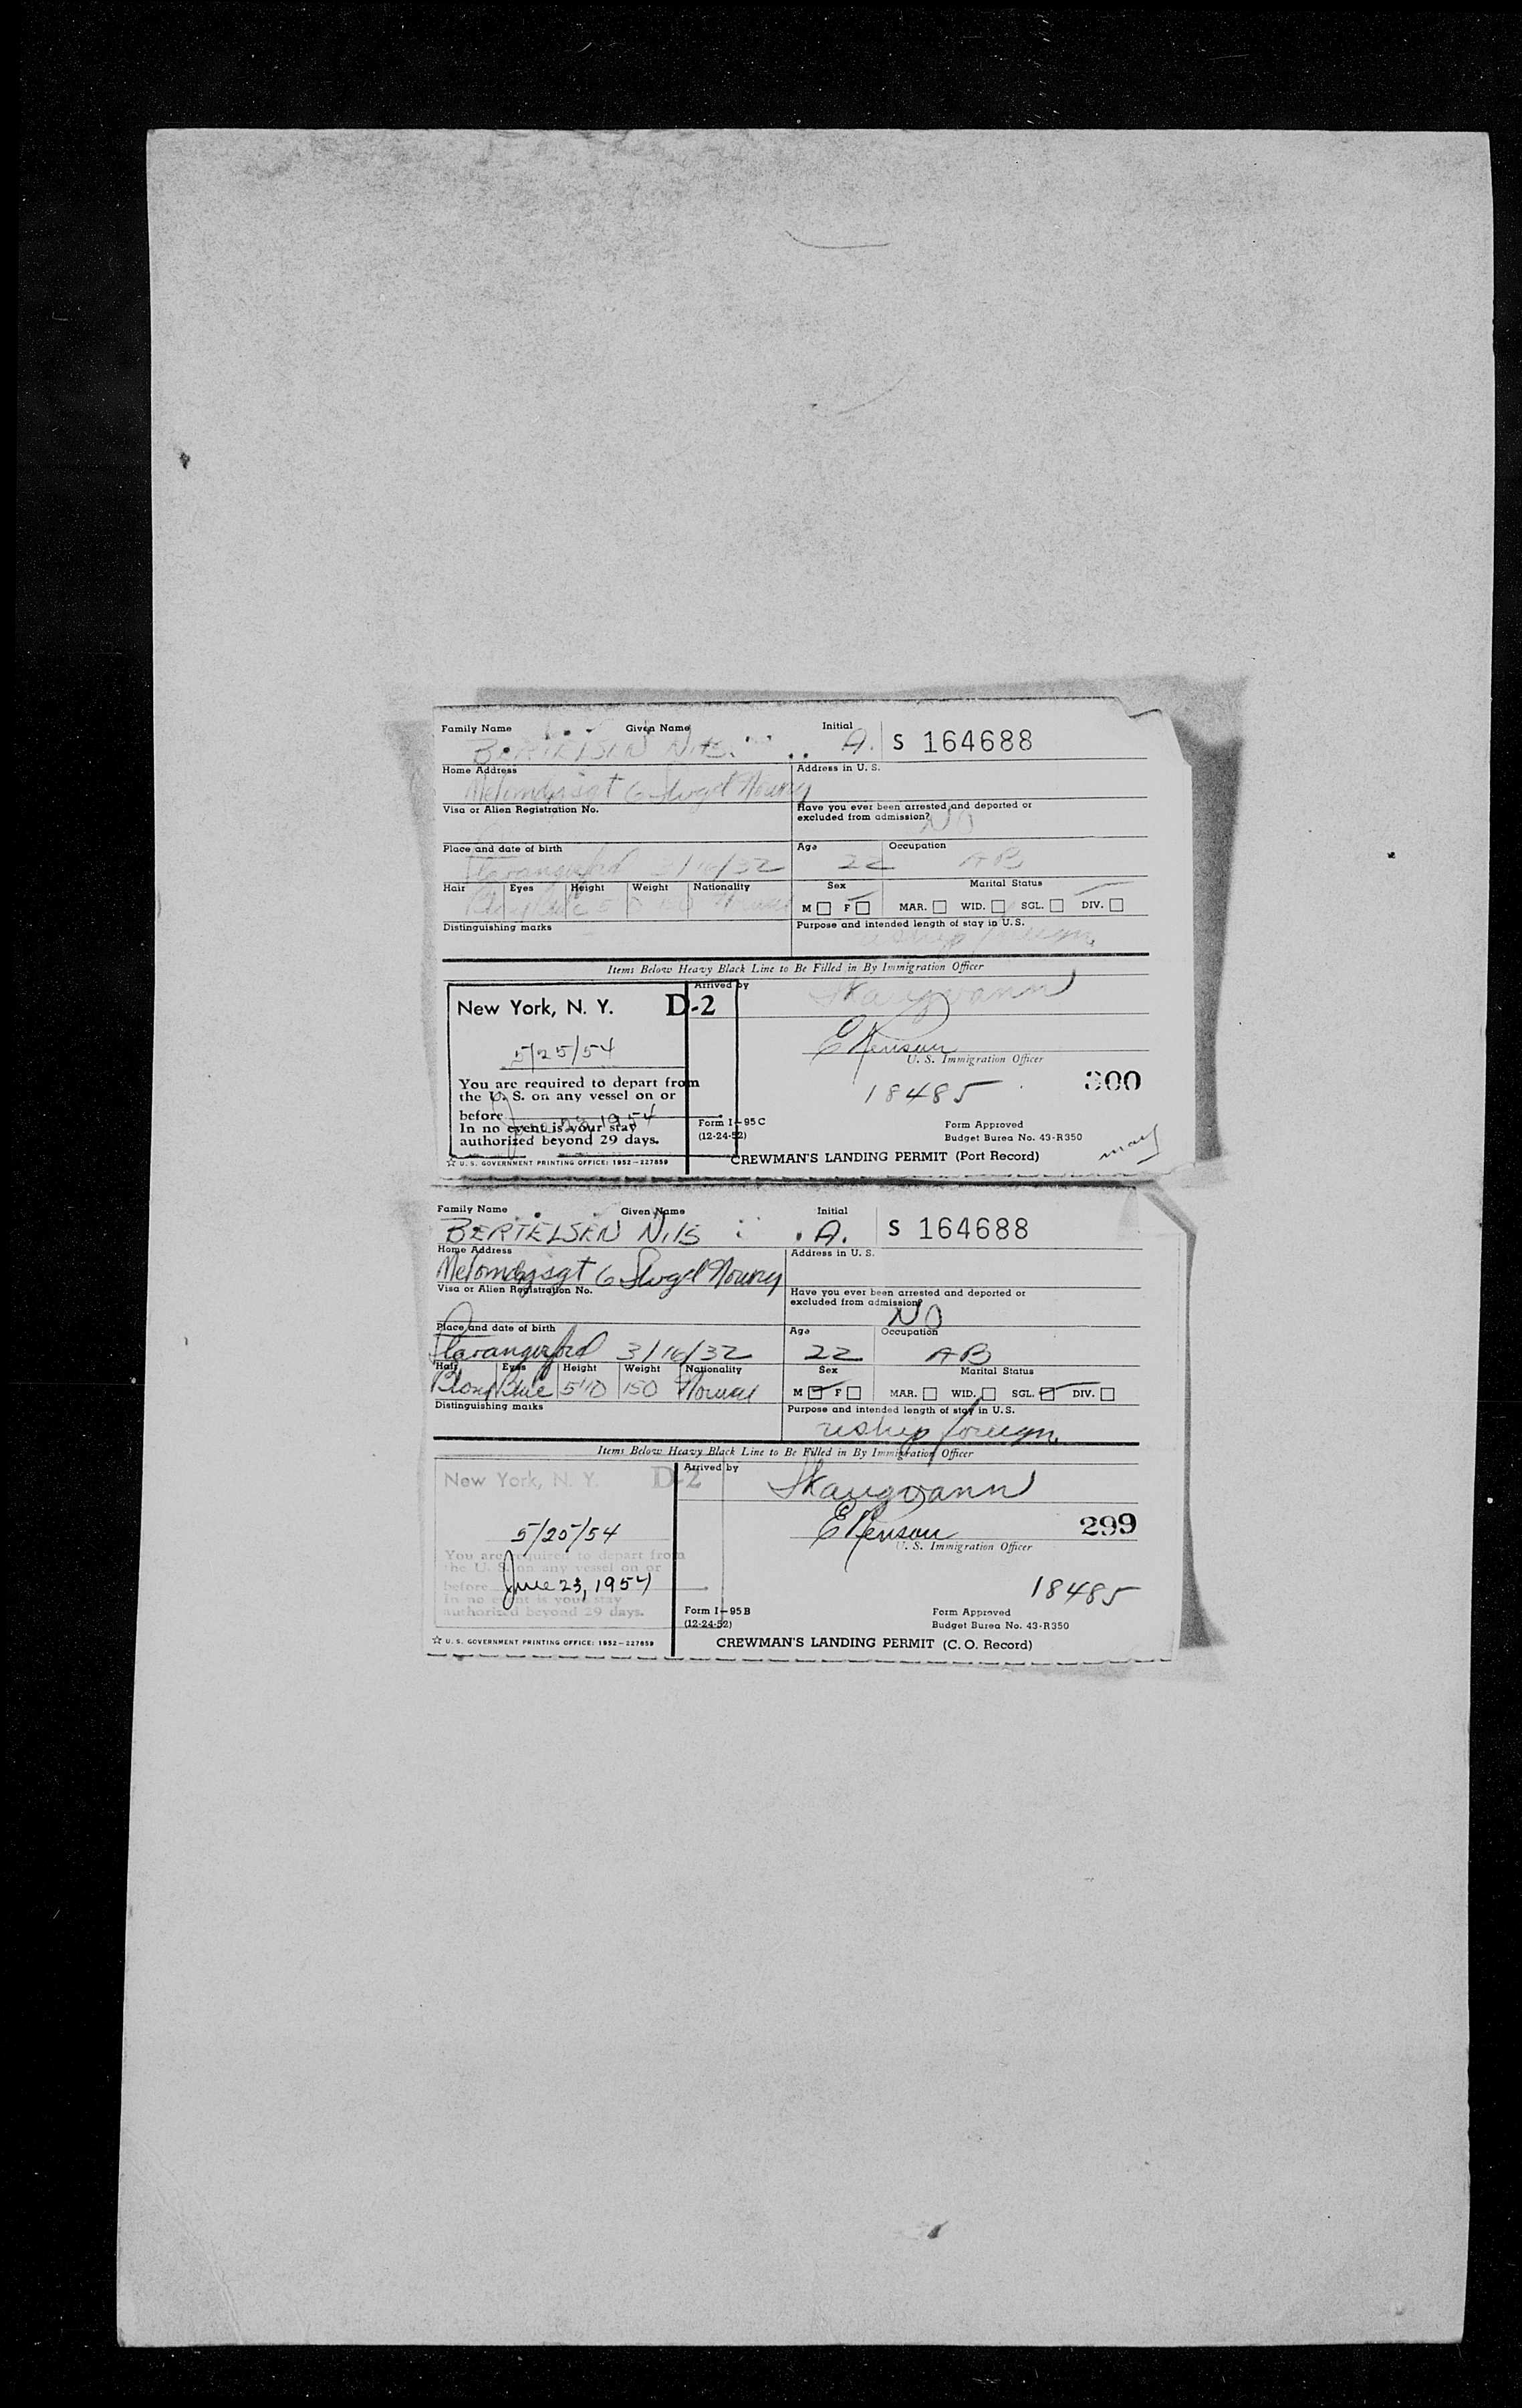 Family Name Given Name Initial
BERTELSEN Nils A. S 164688
Home Address Address in U. S.
6
Visa or Alien Registration No. Have you ever been arrested and deported or
excluded from admission?
NO
Place and date of birth Age Occupation
3/16/32 22 AB
Hair Eyes Height Weight Nationality Sex Marital Status
M F MAR. WID. SGL. DIV.
Distinguishing marks Purpose and intended length of stay in U. S.
reship foreign
Items Below Heavy Black Line to Be Filled in By Immigration Officer
Arrived by
Skaugvann
New York, N. Y. D-2
5/25/54
U. S. Immigration Officer
You are required to depart from
the U. S. on any vessel on or
before June 23, 1954
In no event is your stay
authorized beyond 29 days.
18485
300
Form I-95C
(12-24-52)
Form Approved
Budget Burea No. 43-R350
☆ U. S. GOVERNMENT PRINTING OFFICE: 1952—227859
CREWMAN'S LANDING PERMIT (Port Record)
Family Name Given Name Initial
BERTELSEN Nils A. S 164688
Home Address Address in U. S.
6
Visa or Alien Registration No. Have you ever been arrested and deported or
excluded from admission?
NO
Place and date of birth Age Occupation
3/16/32 22 AB
Hair Eyes Height Weight Nationality Sex Marital Status
Blond Blue 5'10 150 M F MAR. WID. SGL. DIV.
Distinguishing marks Purpose and intended length of stay in U. S.
reship foreign
Items Below Heavy Black Line to Be Filled in By Immigration Officer
Arrived by
Skaugvann
New York, N. Y. D-2
5/25/54
299
U. S. Immigration Officer
You are required to depart from
the U. S. on any vessel on or
before June 23, 1954
In no event is your stay
authorized beyond 29 days.
18485
Form I-95B
(12-24-52)
Form Approved
Budget Burea No. 43-R350
☆ U. S. GOVERNMENT PRINTING OFFICE: 1952—227859
CREWMAN'S LANDING PERMIT (C. O. Record)